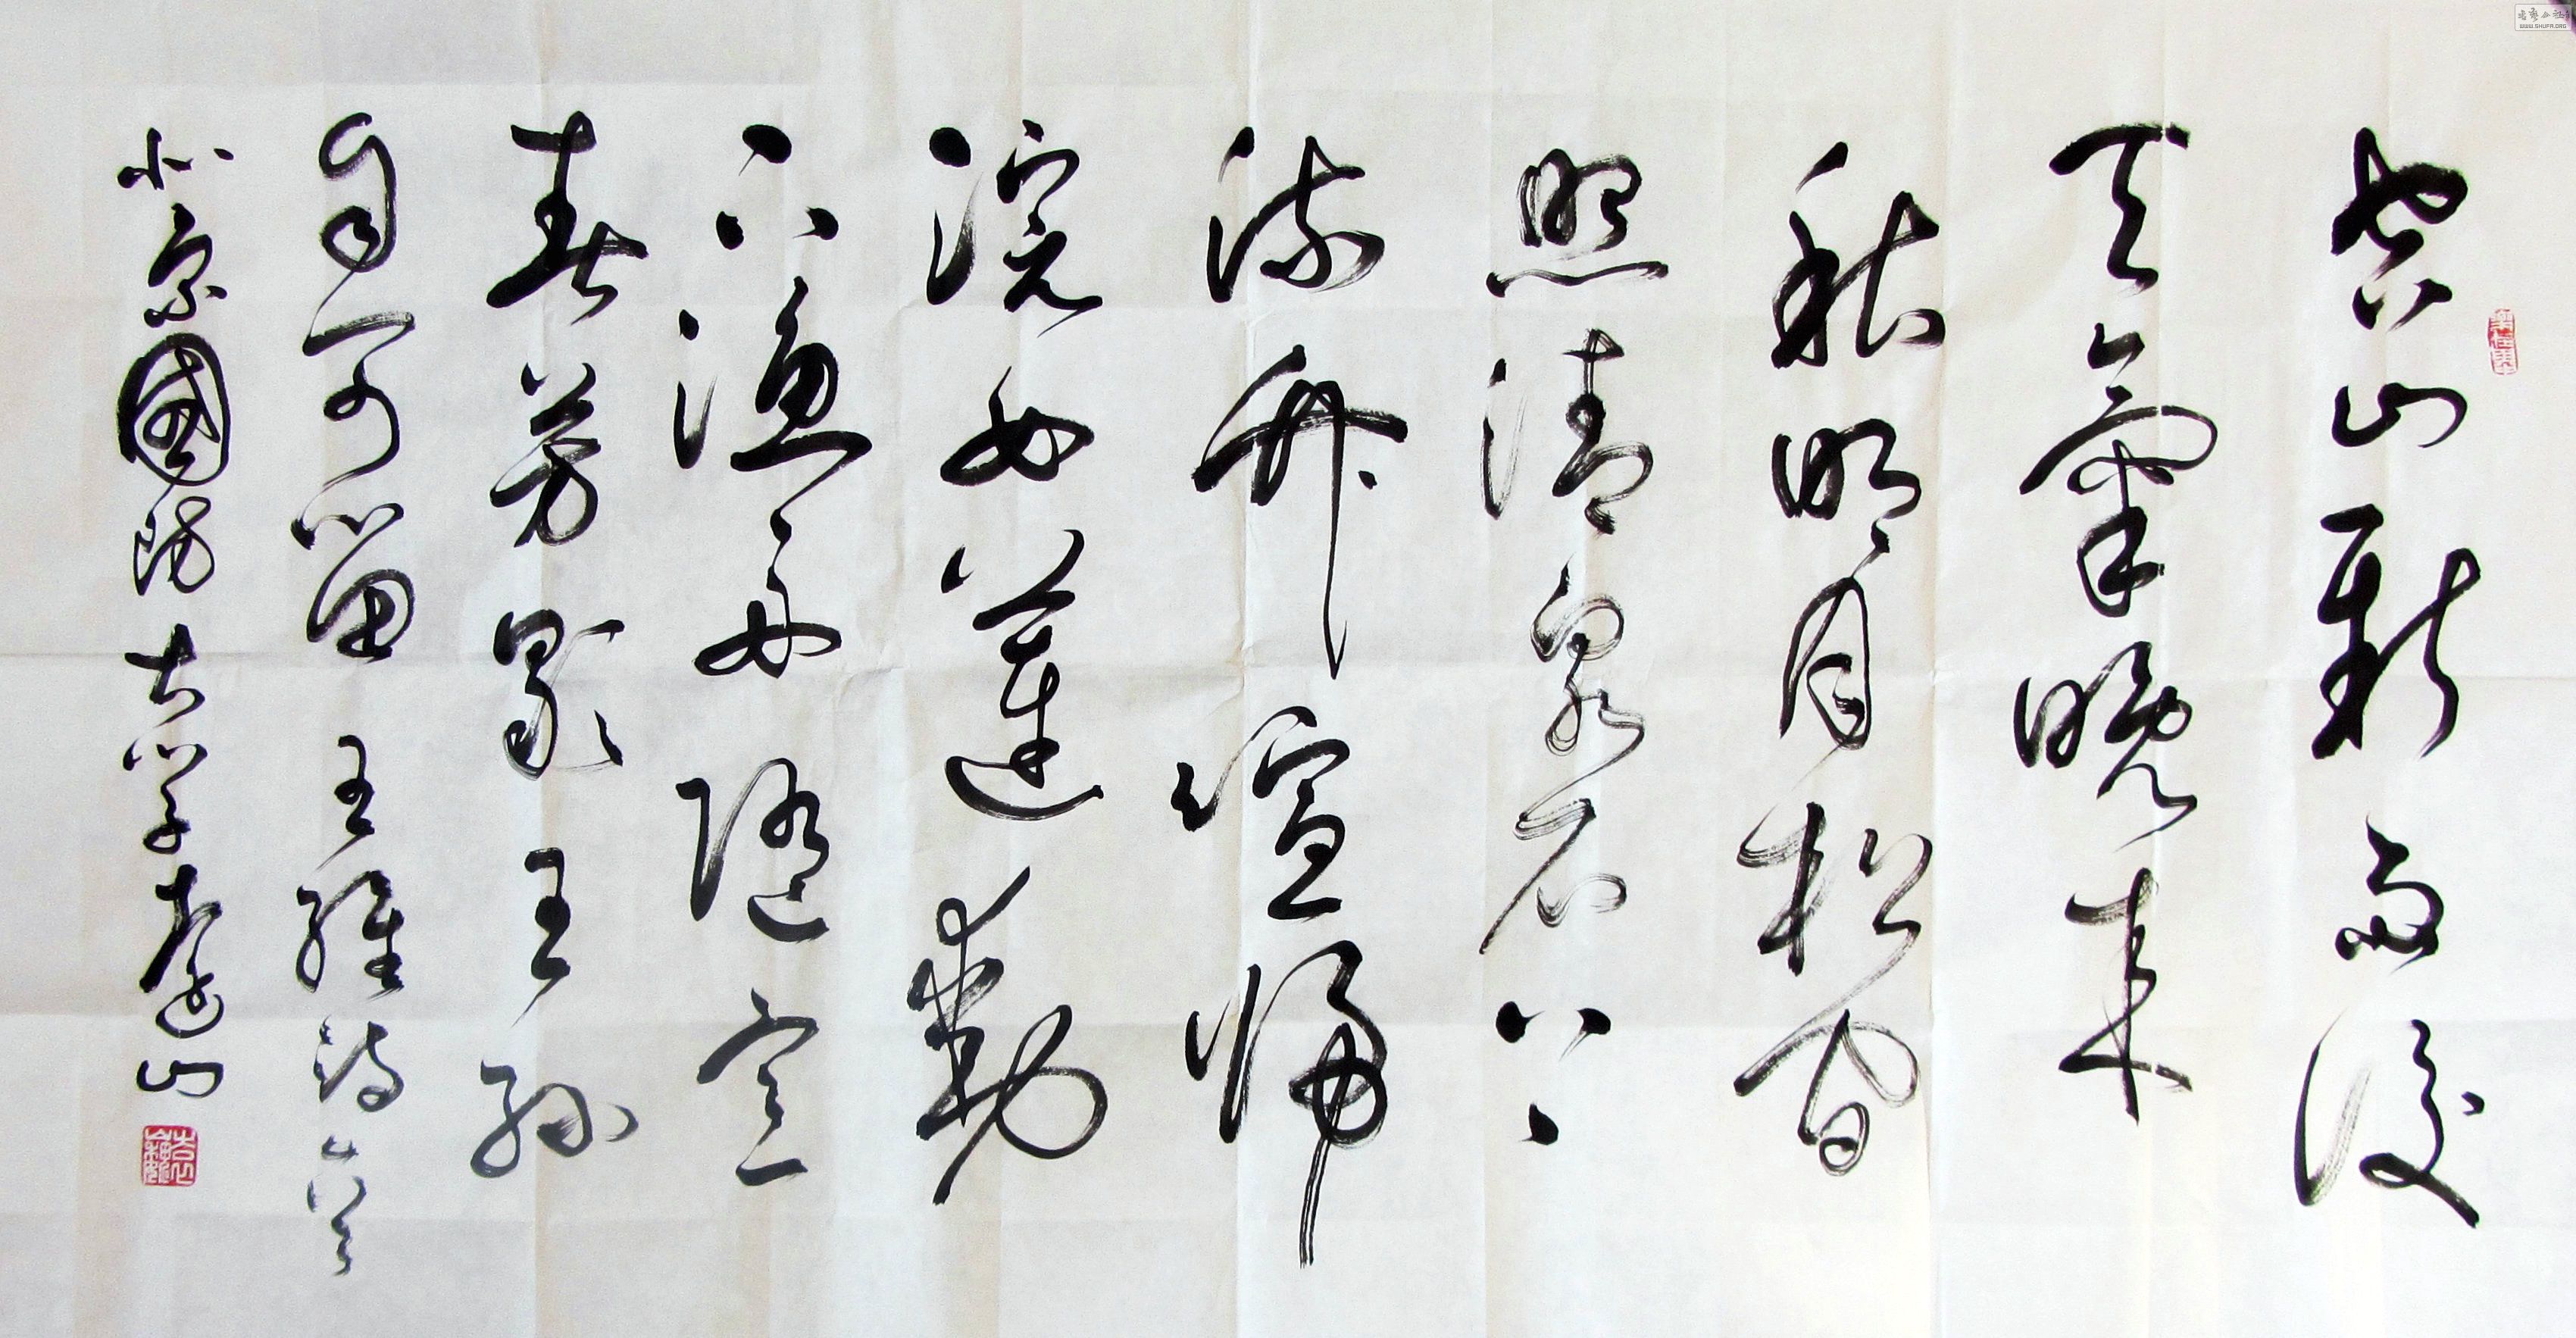 空山新雨後
天氣晚來
秋明月松間
照清泉石上
流竹喧歸
浣女蓮動
下漁舟隨意
春芳歇王孫
自可留 王維詩
北京國防大學 山
WWW.SHUFA.ORG